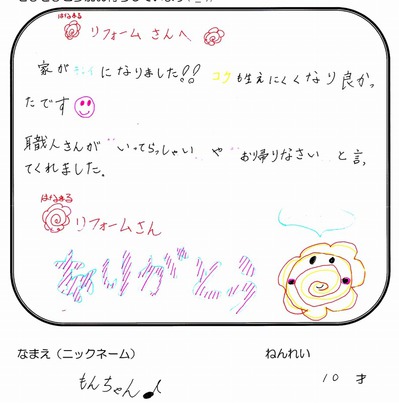 はなまる
リフォームさんへ
家がキレイになりました!!コケも生えにくくなり良かっ
たです
職人さんが"いってらっしゃい"や"お帰りなさい"と言っ
てくれました。
はなまる
リフォームさん
ありがとう
なまえ（ニックネーム）
ねんれい
もんちゃん♪
10 才